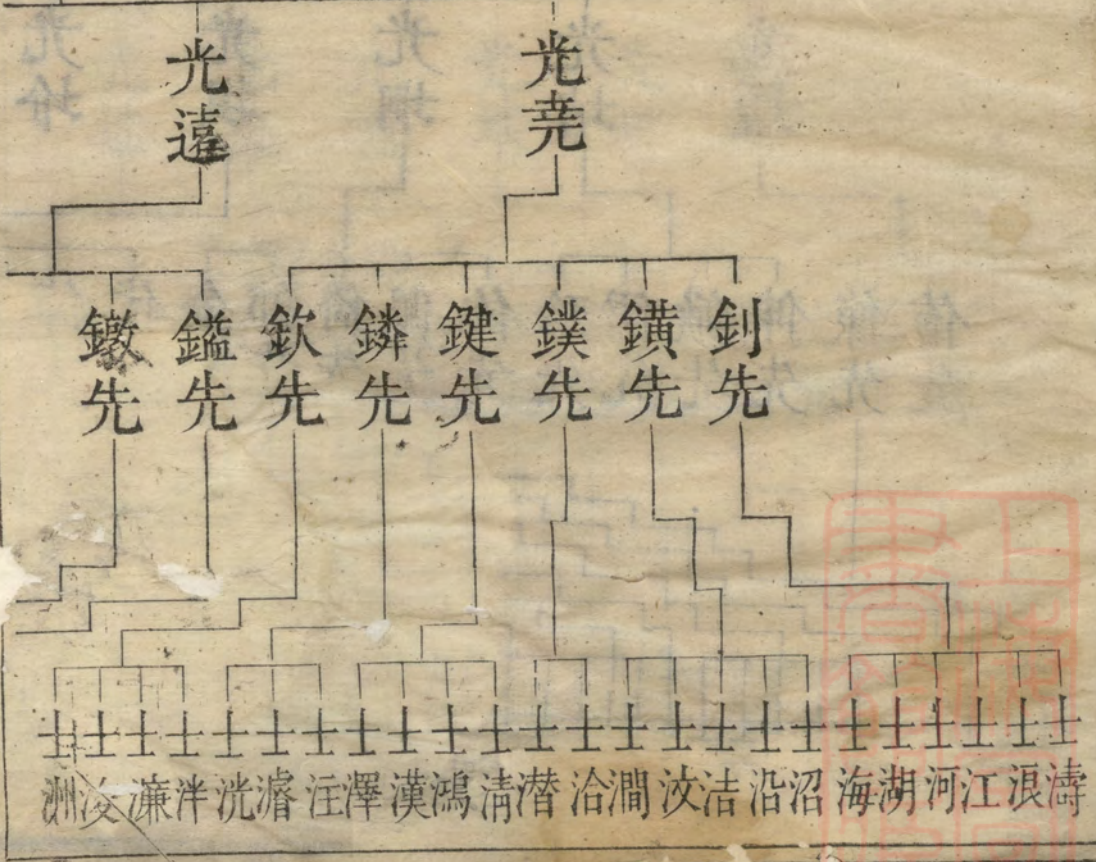 光尭
光遠
釗先
鐄先
鏷先
鍵先
鏻先
欽先
鎰先
鐓先
士濤
士浪
士江
士河
士湖
士海
士沼
士沿
士洁
士汶
士澗
士洽
士潜
士清
士鴻
士漢
士澤
士汪
士濬
士洸
士泮
士濂
士浚
士洲
上海圖
書館藏